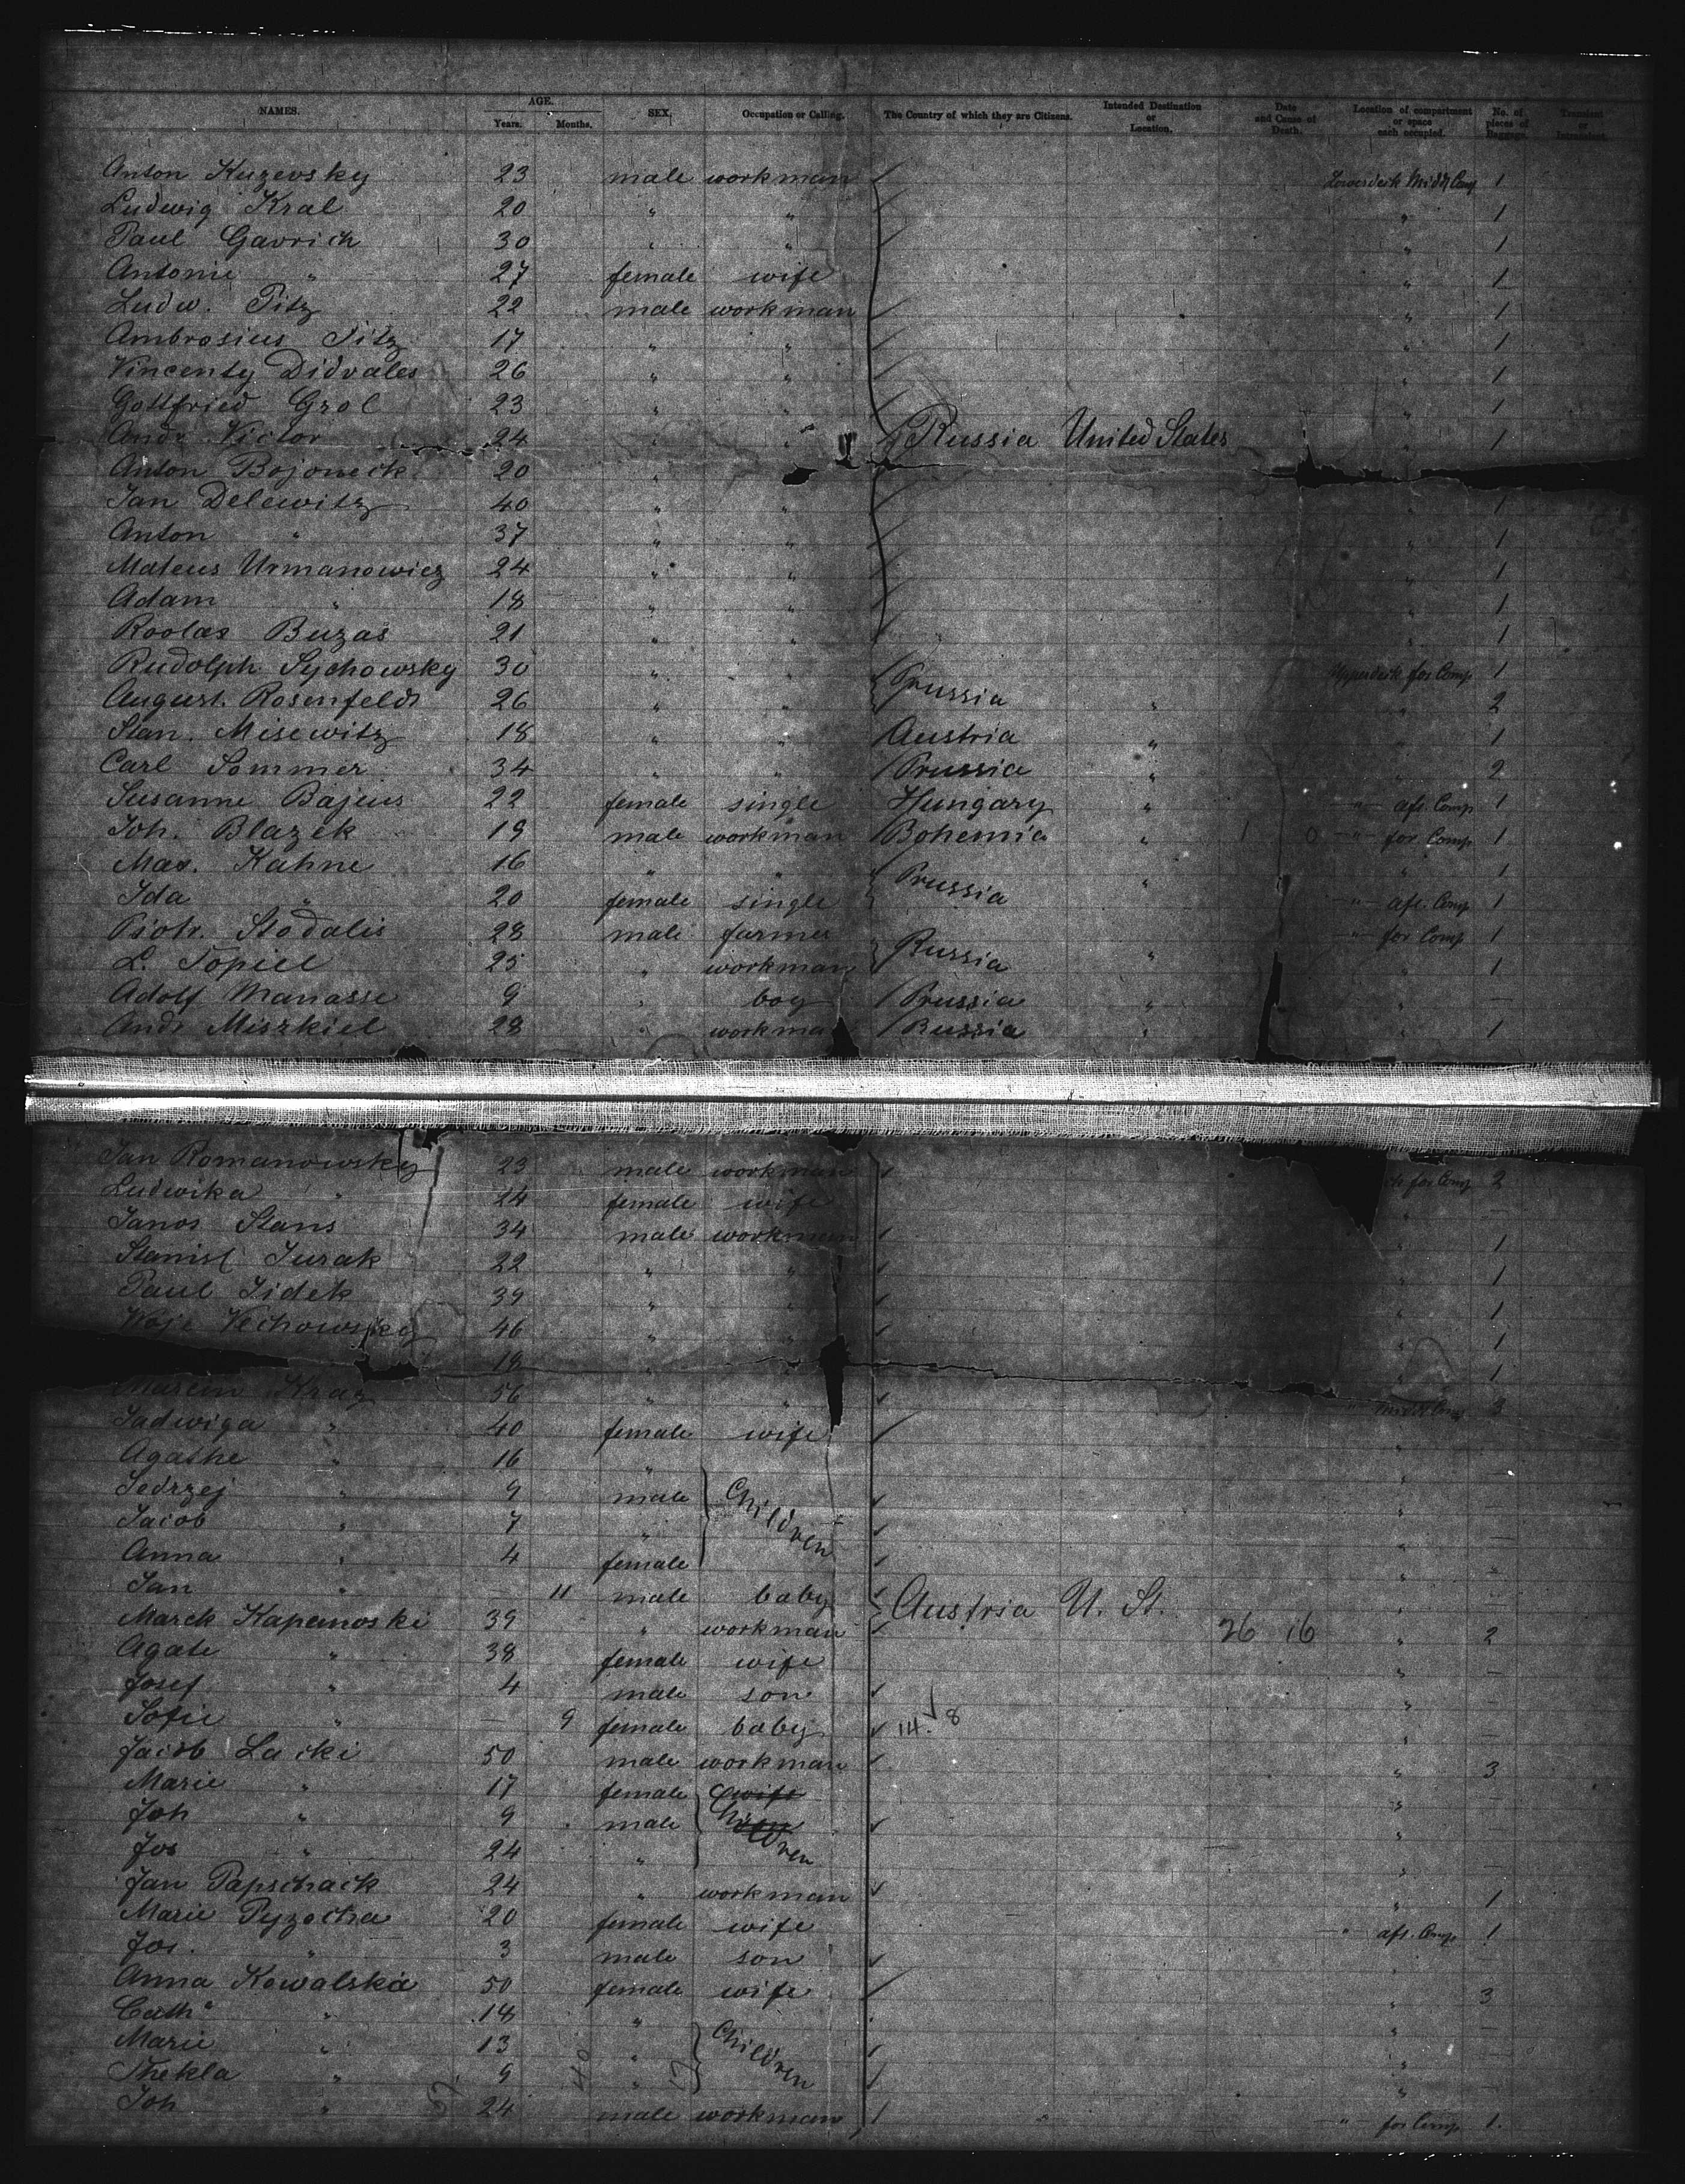 NAMES. AGE. Years. Months. SEX. Occupation or Calling. The Country of which they are Citizens. Intended Destination or Location. Date and Cause of Death. Location of compartment or space each occupied. No. of pieces of Baggage. Transient or
Anton Kuzevsky 23 male workman Lowerdeck Middl Comp 1
Ludwig Kral 20 " " " 1
Paul Gavrich 30 " " " 1
Antonie " 27 female wife " 1
Ludw. Pitz 22 male workman " 1
Ambrosius Pitz 17 " " " 1
Vincenty Didvales 26 " " " 1
Gottfried Grol 23 " " " 1
Andr. Victor 24 " " Russia United States " 1
Anton Bojoneck 20 "
Jan Delewitz 40 " " " 1
Anton " 37 " " " 1
Mateus Urmanowicz 24 " " " 1
Adam " 18 " " " 1
Roolas Buzas 21 " " " 1
Rudolph Sychowsky 30 " " Prussia Upperdeck for Comp 1
August. Rosenfeldt 26 " " " " 2
Stan. Misewitz 18 " " Austria " " 1
Carl Sommer 34 " " Prussia " " 2
Susanne Bajeus 22 female single Hungary " " aft. Comp 1
Joh. Blazek 19 male workman Bohemia " 1 0 " for. Comp 1
Max. Kahne 16 " " Prussia " " 1
Ida " 20 female single " aft. Comp 1
Piotr. Stodalis 28 male farmer Russia " " for Comp 1
L. Topiel 25 " workman " 1
Adolf Manasse 9 " boy Prussia " " —
Andr Miszkiel 28 " workma Russia " " 1
Jan Romanowsky 23 male workman for Comp 2
Ludwika " 24 female wife " —
Janos Stans 34 male workman " 1
Stanisl Jurak 22 " " " 1
Paul Jidek 39 " " " 1
Woje Vechowsky 46 " " " 1
18 " " " 1
Marcin Krag 56 " " " Middl Comp 3
Jadwiga " 40 female wife " —
Agathe " 16 " " —
Jedrzej " 9 male Children " —
Jacob " 7 " " —
Anna " 4 female " —
Jan " — 11 male baby Austria U. St. " —
Marek Kapanoski 39 " workman 26 16 " 2
Agate " 38 female wife " —
Josef " 4 male son " —
Sofie " — 9 female baby 14. 8 " —
Jacob Lacki 50 male workman " 3
Marie " 17 female wife " —
Joh " 9 male Children " —
Jos " 24 " " —
Jan Papschack 24 " workman " 1
Marie Pyzocha 20 female wife " aft. Comp 1
Jos. " 3 male son " —
Anna Kowalska 50 female wife " 3
Cath. " 18 " " —
Marie " 13 " Children " —
Thekla " 9 " " —
Joh " 24 male workman " " for Comp 1.